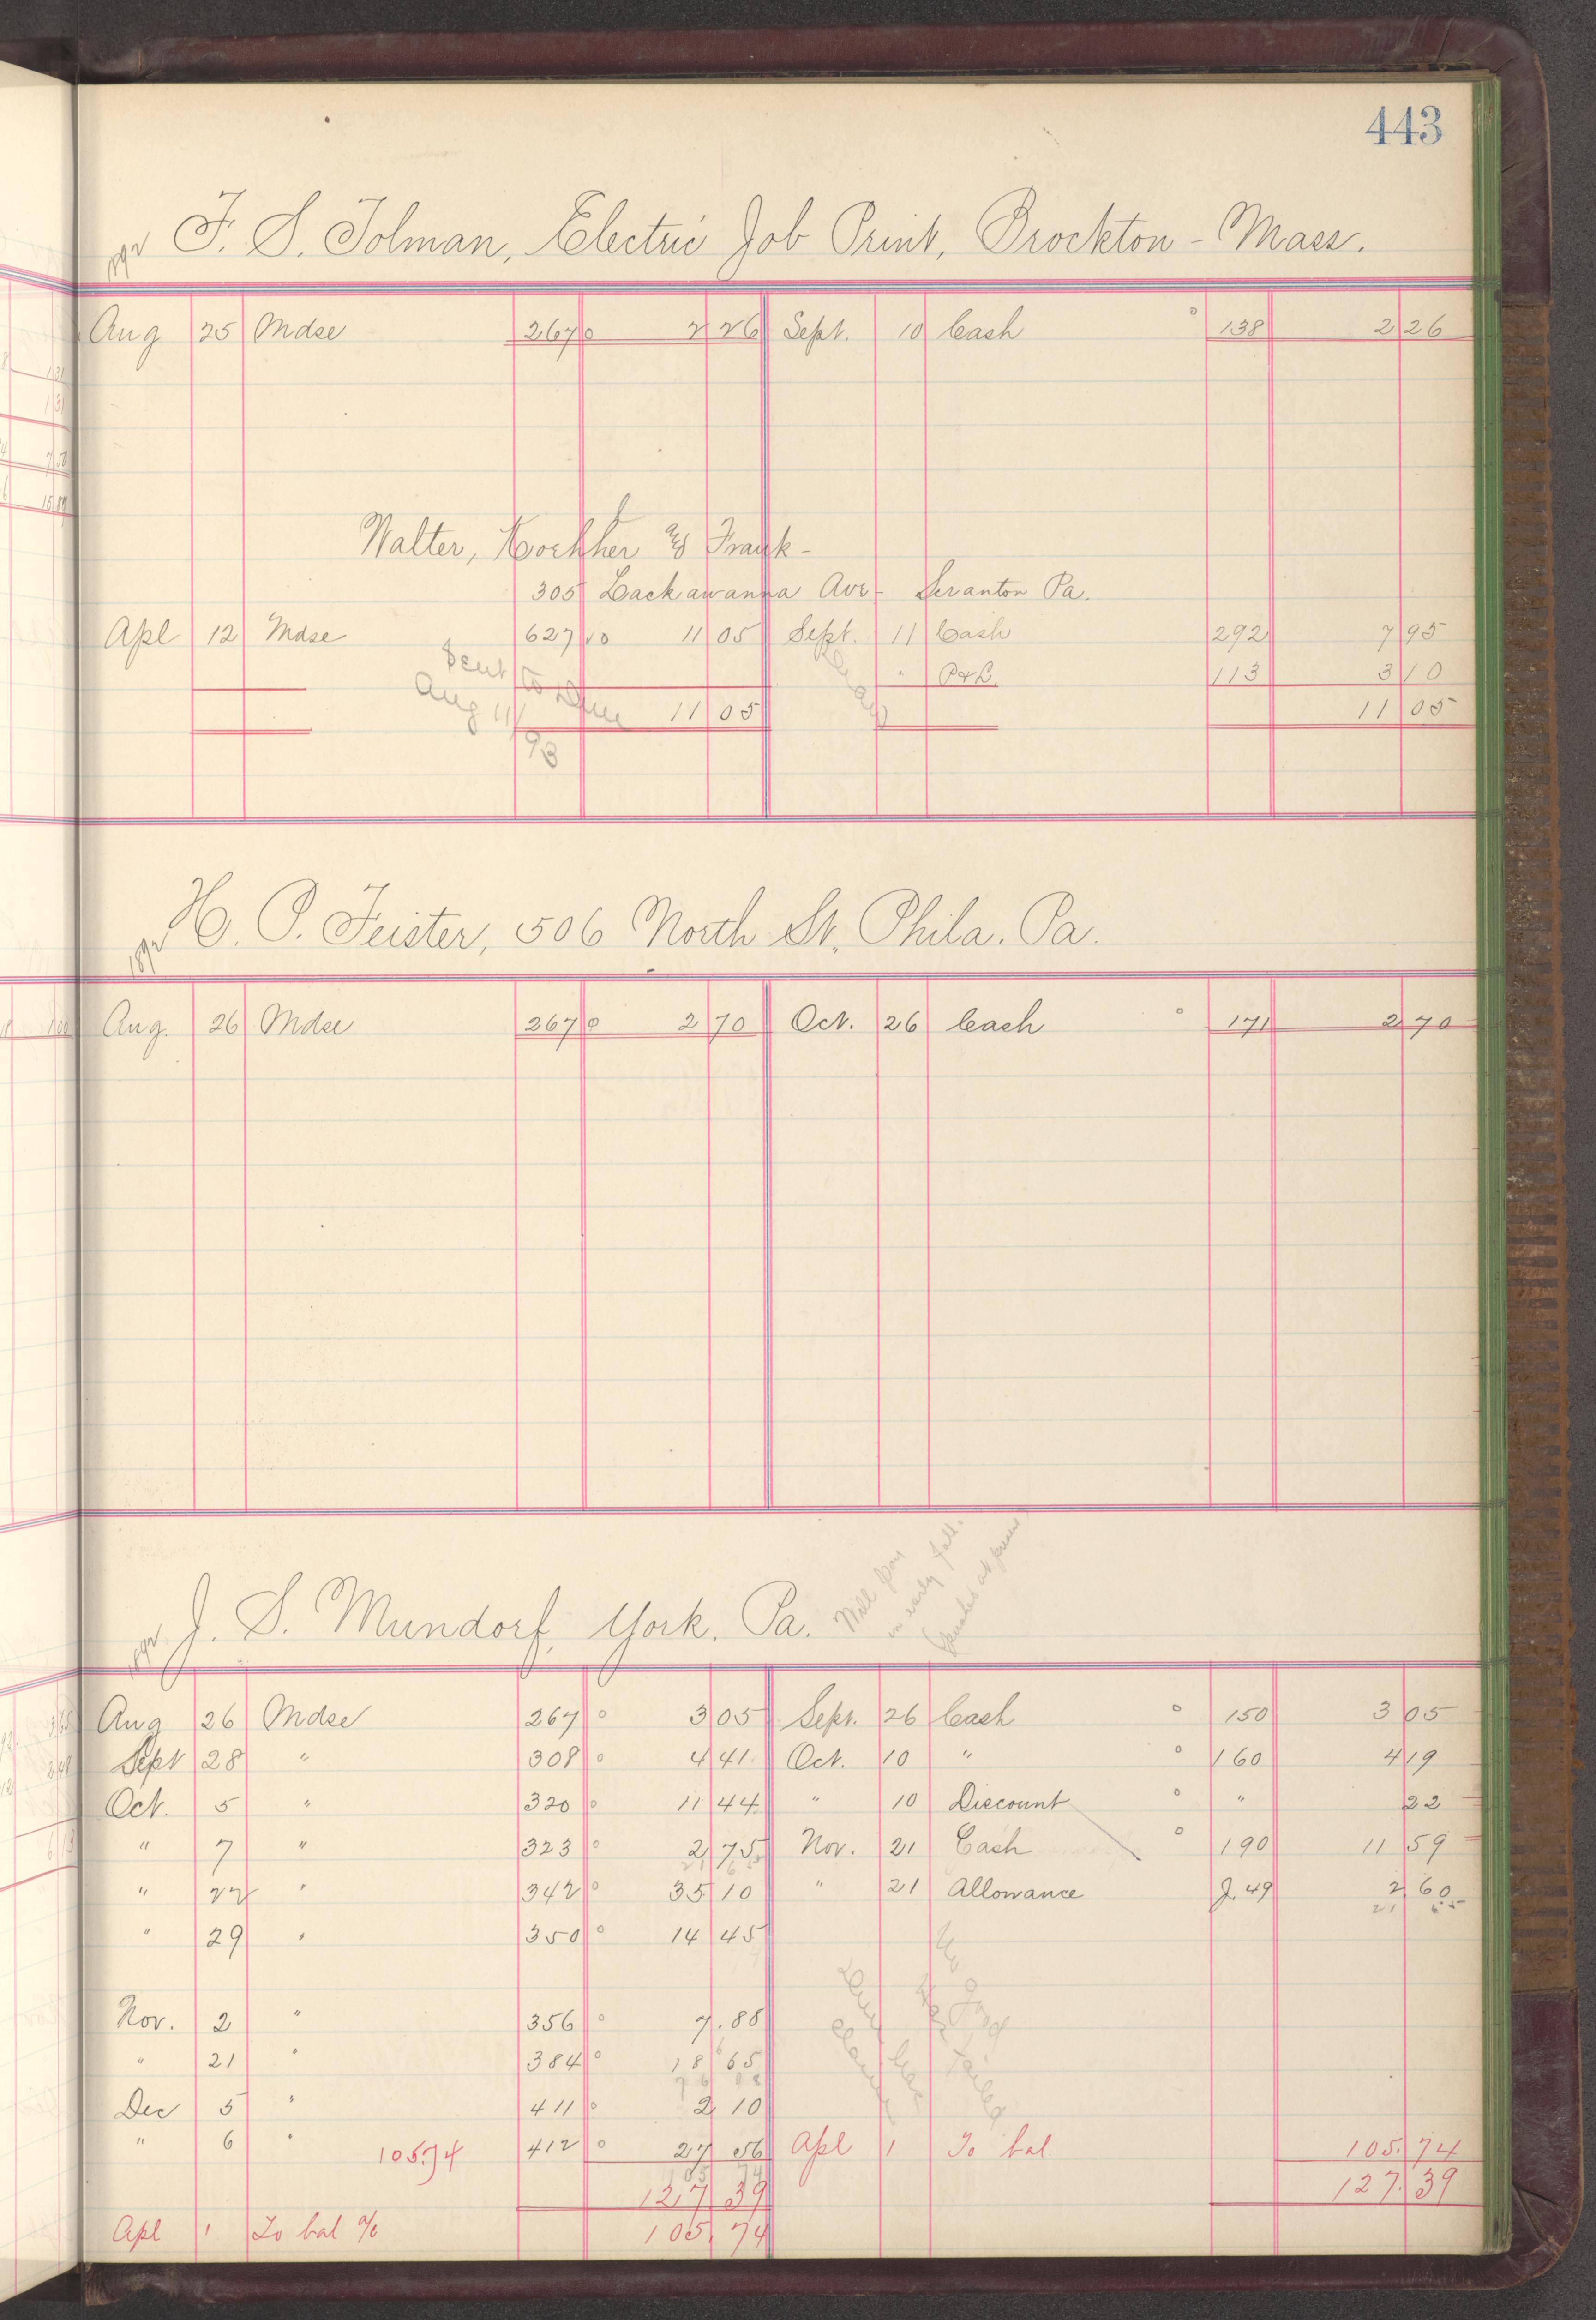 443
1892 F. S. Tolman, Electric Job Print, Brockton - Mass.
Aug 25 Mdse 267 2 26 Sept. 10 Cash 138 2 26
Walter, & Frank -
305 Lackawanna Ave - Scranton Pa.
Apl 12 Mdse 627 11 05 Sept. 11 Cash 292 7 95
Sent to Dun " P & L. 113 3 10
Aug 11/93 11 05 11 05
1892 H. P. Feister, 506 North St. Phila. Pa.
Aug. 26 Mdse 267 2 70 Oct. 26 Cash 171 2 70
Will pay
in early fall.
1892 J. S. Mundorf, York, Pa.
Aug 26 Mdse 267 3 05 Sept. 26 Cash 150 3 05
Sept 28 " 308 4 41 Oct. 10 " 160 4 19
Oct. 5 " 320 11 44 " 10 Discount " 22
" 7 " 323 2 75 Nov. 21 Cash 190 11 59
" 22 " 342 35 10 " 21 Allowance J. 49 2 60
21 65
" 29 " 350 14 45
Nov. 2 " 356 7.88
" 21 " 384 18 65
Dec 5 " 411 2 10
" 6 " 105.74 412 27 56 Apl 1 To bal. 105.74
127 39 127.39
Apl 1 To bal % 105.74